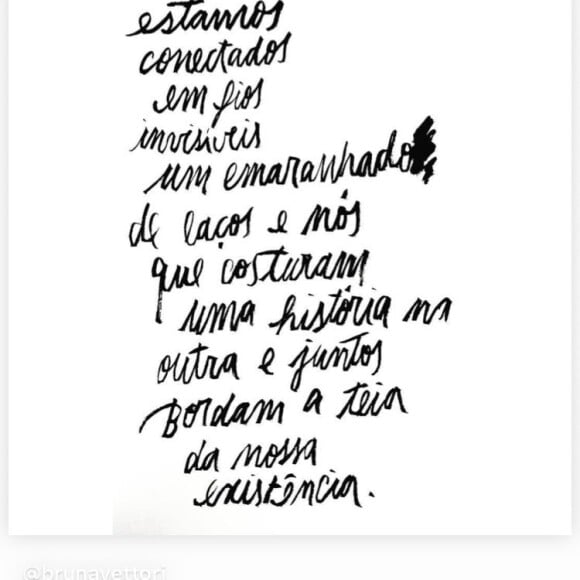 estamos
conectados
em fios
invisíveis
um emaranhado
de laços e nós
que costuram
uma história na
outra e juntos
bordam a teia
da nossa
existência.
@brunavettori